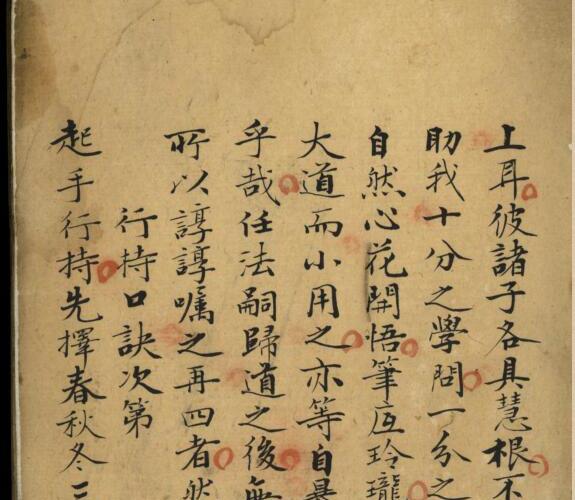 上耳彼諸子各具慧根不
助我十分之學問一分之
自然心花開悟筆底玲瓏
大道而小用之亦等自暴
乎哉任法嗣歸道之後無
所以諄諄囑之再四者然
行持口訣次第
起手行持先擇春秋冬三